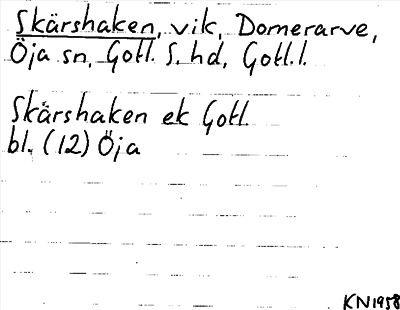 Skärshaken, vik, Domerarve,
Öja sn, Gotl. S. hd, Gotl. l.
Skärshaken ek Gotl.
bl. (12) Öja
KN1958